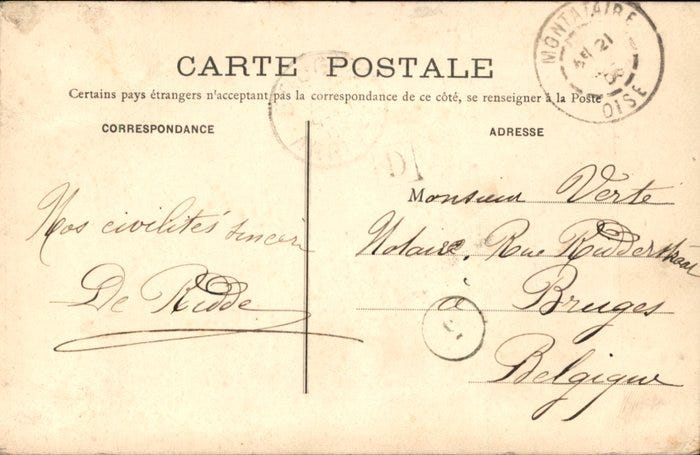 CARTE POSTALE
Certains pays étrangers n'acceptant pas la correspondance de ce côté, se renseigner à la Poste
CORRESPONDANCE
ADRESSE
MONTATAIRE
21
OISE
Nos civilités sincères
De Ridde
Monsieur Verte
Notaire, Rue Ridderstraat
à Bruges
Belgique